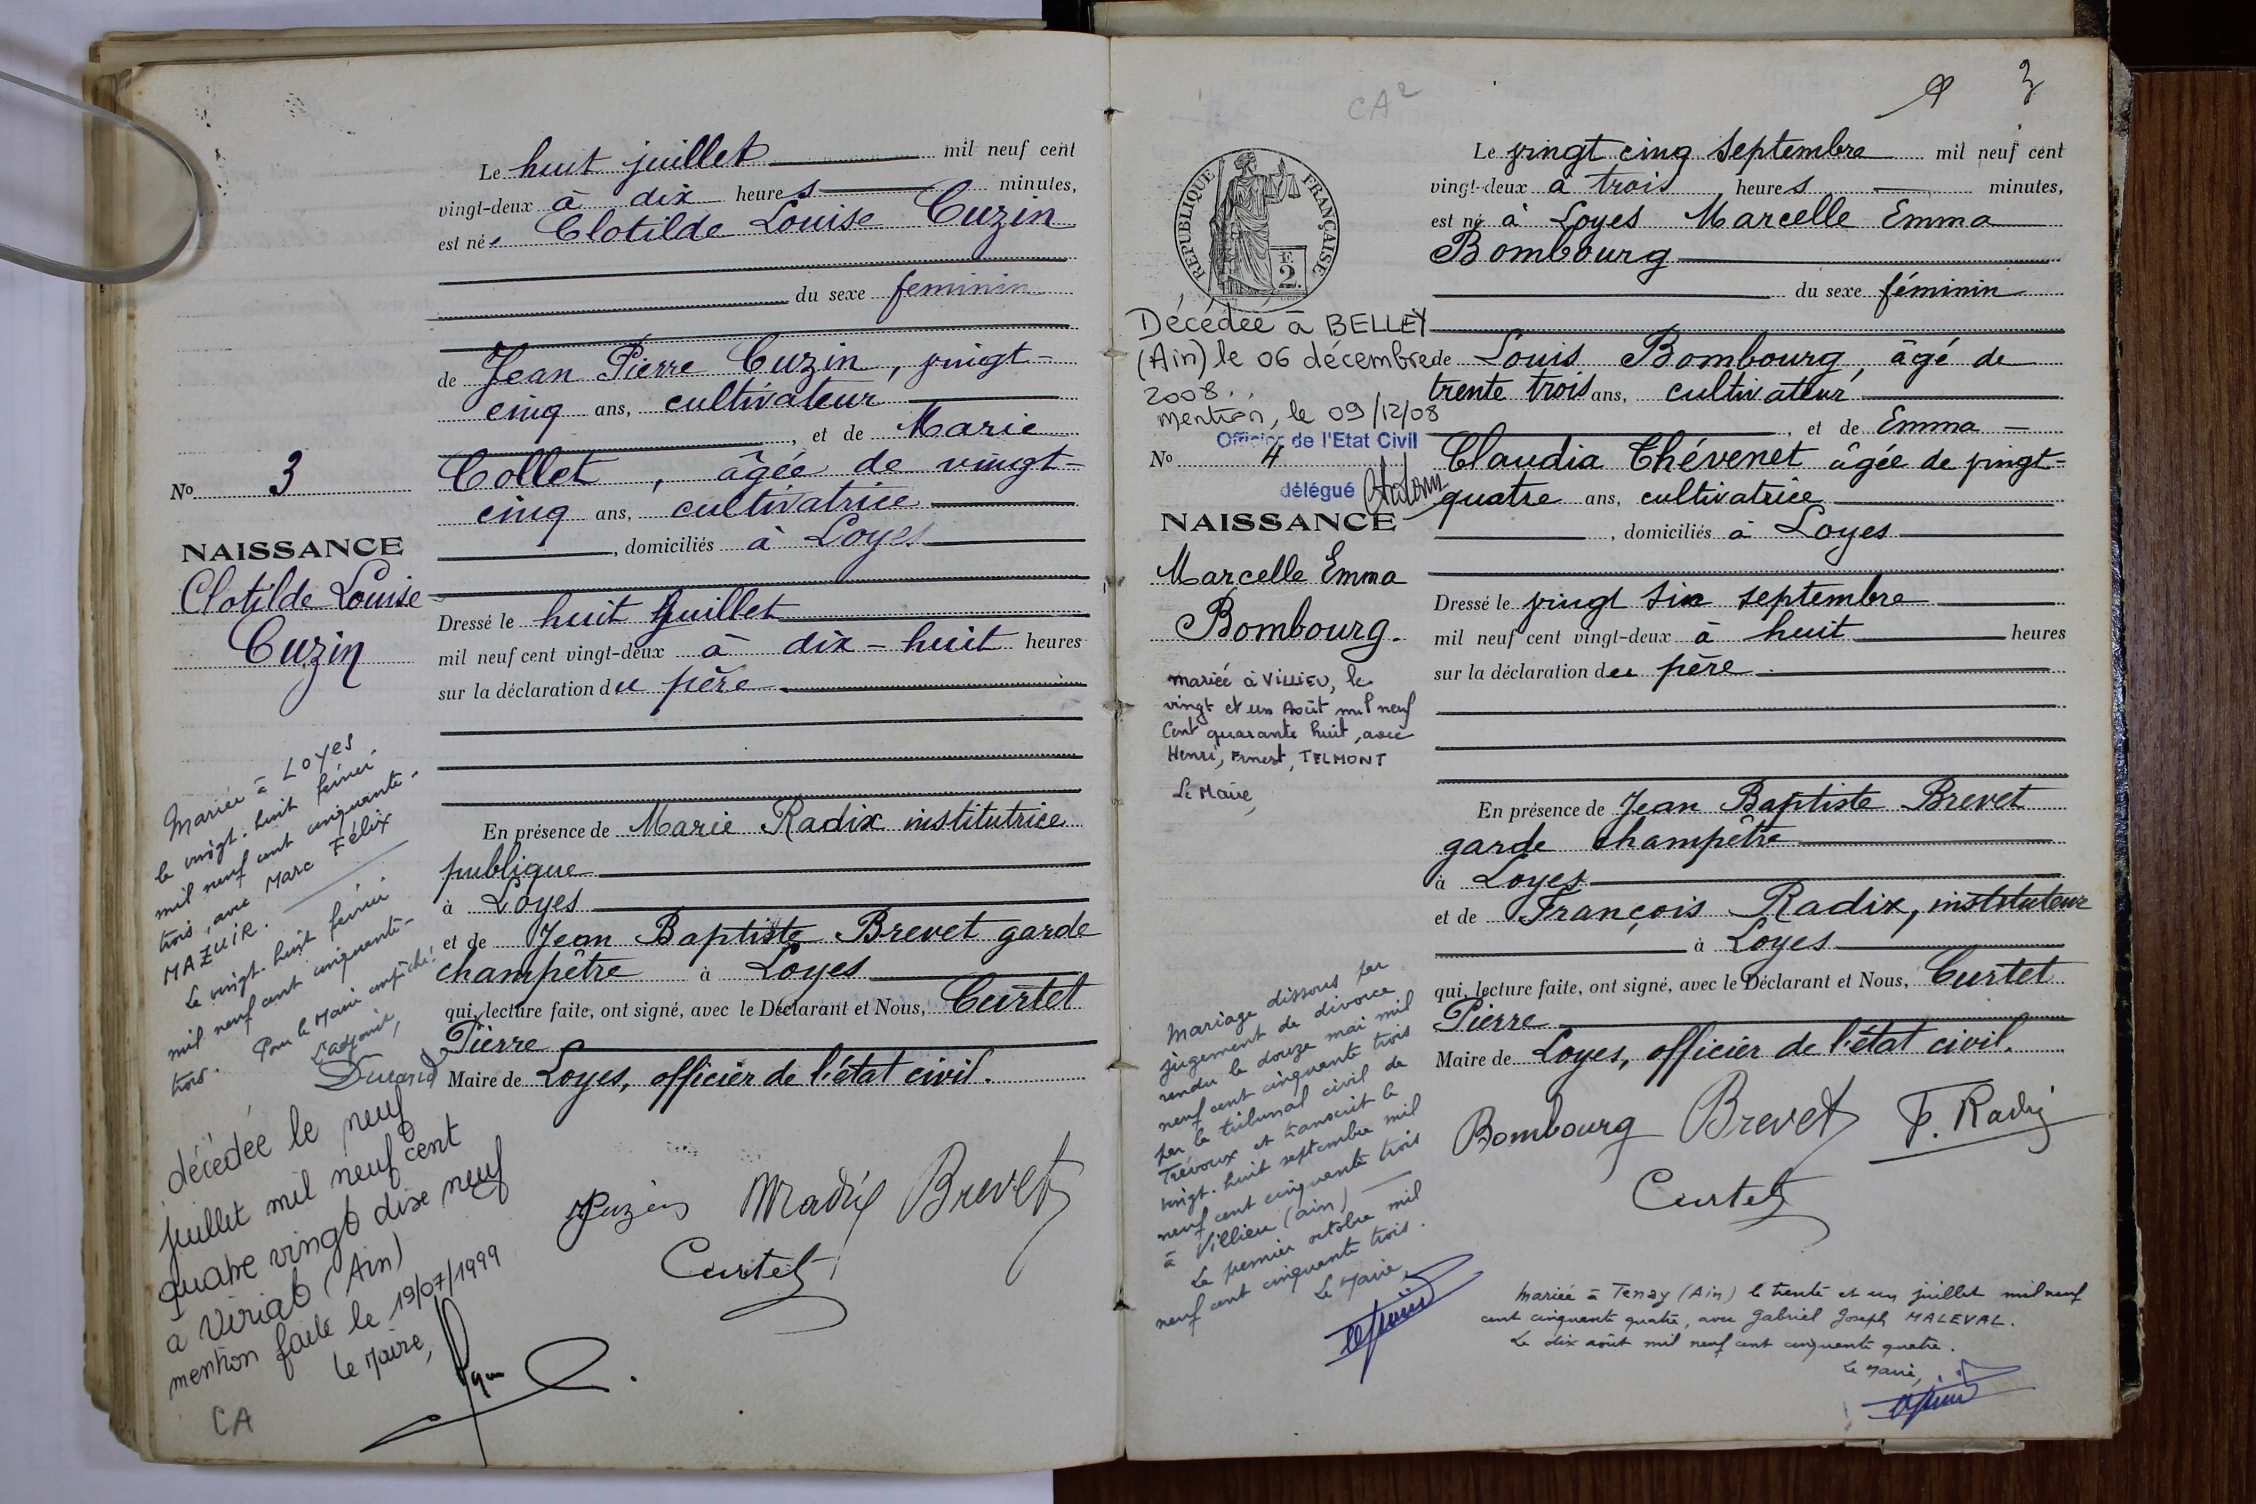 Le huit juillet mil neuf cent
vingt-deux à dix heures minutes,
est née Clotilde Louise Cuzin
du sexe feminin
de Jean Pierre Cuzin, vingt-
cinq ans, cultivateur
, et de Marie
Collet, âgée de vingt-
cinq ans, cultivatrice
, domiciliés à Loyes
Dressé le huit Juillet
mil neuf cent vingt-deux à dix-huit heures
sur la déclaration du père
En présence de Marie Radix institutrice
publique
à Loyes
et de Jean Baptiste Brevet garde
champêtre à Loyes
qui, lecture faite, ont signé, avec le Déclarant et Nous, Curtet
Pierre
Maire de Loyes, officier de l'état civil.
Cuzin MRadix Brevet
Curtet
No 3
NAISSANCE
Clotilde Louise
Cuzin
Mariée à Loyes
le vingt-huit février
mil neuf cent cinquante-
trois, avec Marc Félix
MAZUIR.
Le vingt-huit février
mil neuf cent cinquante-
trois. Pour le Maire empêché:
L'adjoint,
Durand
décédée le neuf
juillet mil neuf cent
quatre vingt dix neuf
à Viriat (Ain)
mention faite le 19/07/1999
le Maire,
CA
CA2
3
REPUBLIQUE FRANÇAISE
2F.
Décédée à BELLEY
(Ain) le 06 décembre
2008..
mention, le 09/12/08
Officier de l'Etat Civil
No 4
délégué
NAISSANCE
Marcelle Emma
Bombourg.
mariée à VILLIEU, le
vingt et un Août mil neuf
Cent quarante huit, avec
Henri, Ernest, TELMONT
Le Maire,
Mariage dissous par
jugement de divorce
rendu le douze mai mil
neuf cent cinquante trois
par le tribunal civil de
Trévoux et transcrit le
vingt-huit septembre mil
neuf cent cinquante trois
à Villieu (ain)
Le premier octobre mil
neuf cent cinquante trois.
Le Maire,
Le vingt cinq septembre mil neuf cent
vingt-deux à trois heures minutes,
est né à Loyes Marcelle Emma
Bombourg
du sexe féminin
de Louis Bombourg, âgé de
trente trois ans, cultivateur
, et de Emma
Claudia Thévenet âgée de vingt-
quatre ans, cultivatrice
, domiciliés à Loyes
Dressé le vingt six septembre
mil neuf cent vingt-deux à huit heures
sur la déclaration du père
En présence de Jean Baptiste Brevet
garde champêtre
à Loyes
et de François Radix, instituteur
à Loyes
qui, lecture faite, ont signé, avec le Déclarant et Nous, Curtet
Pierre
Maire de Loyes, officier de l'état civil.
Bombourg Brevet F. Radix
Curtet
Mariée à Tenay (Ain) le trente et un juillet mil neuf
cent cinquante quatre, avec Gabriel Joseph MALEVAL.
Le dix août mil neuf cent cinquante quatre.
Le Maire,